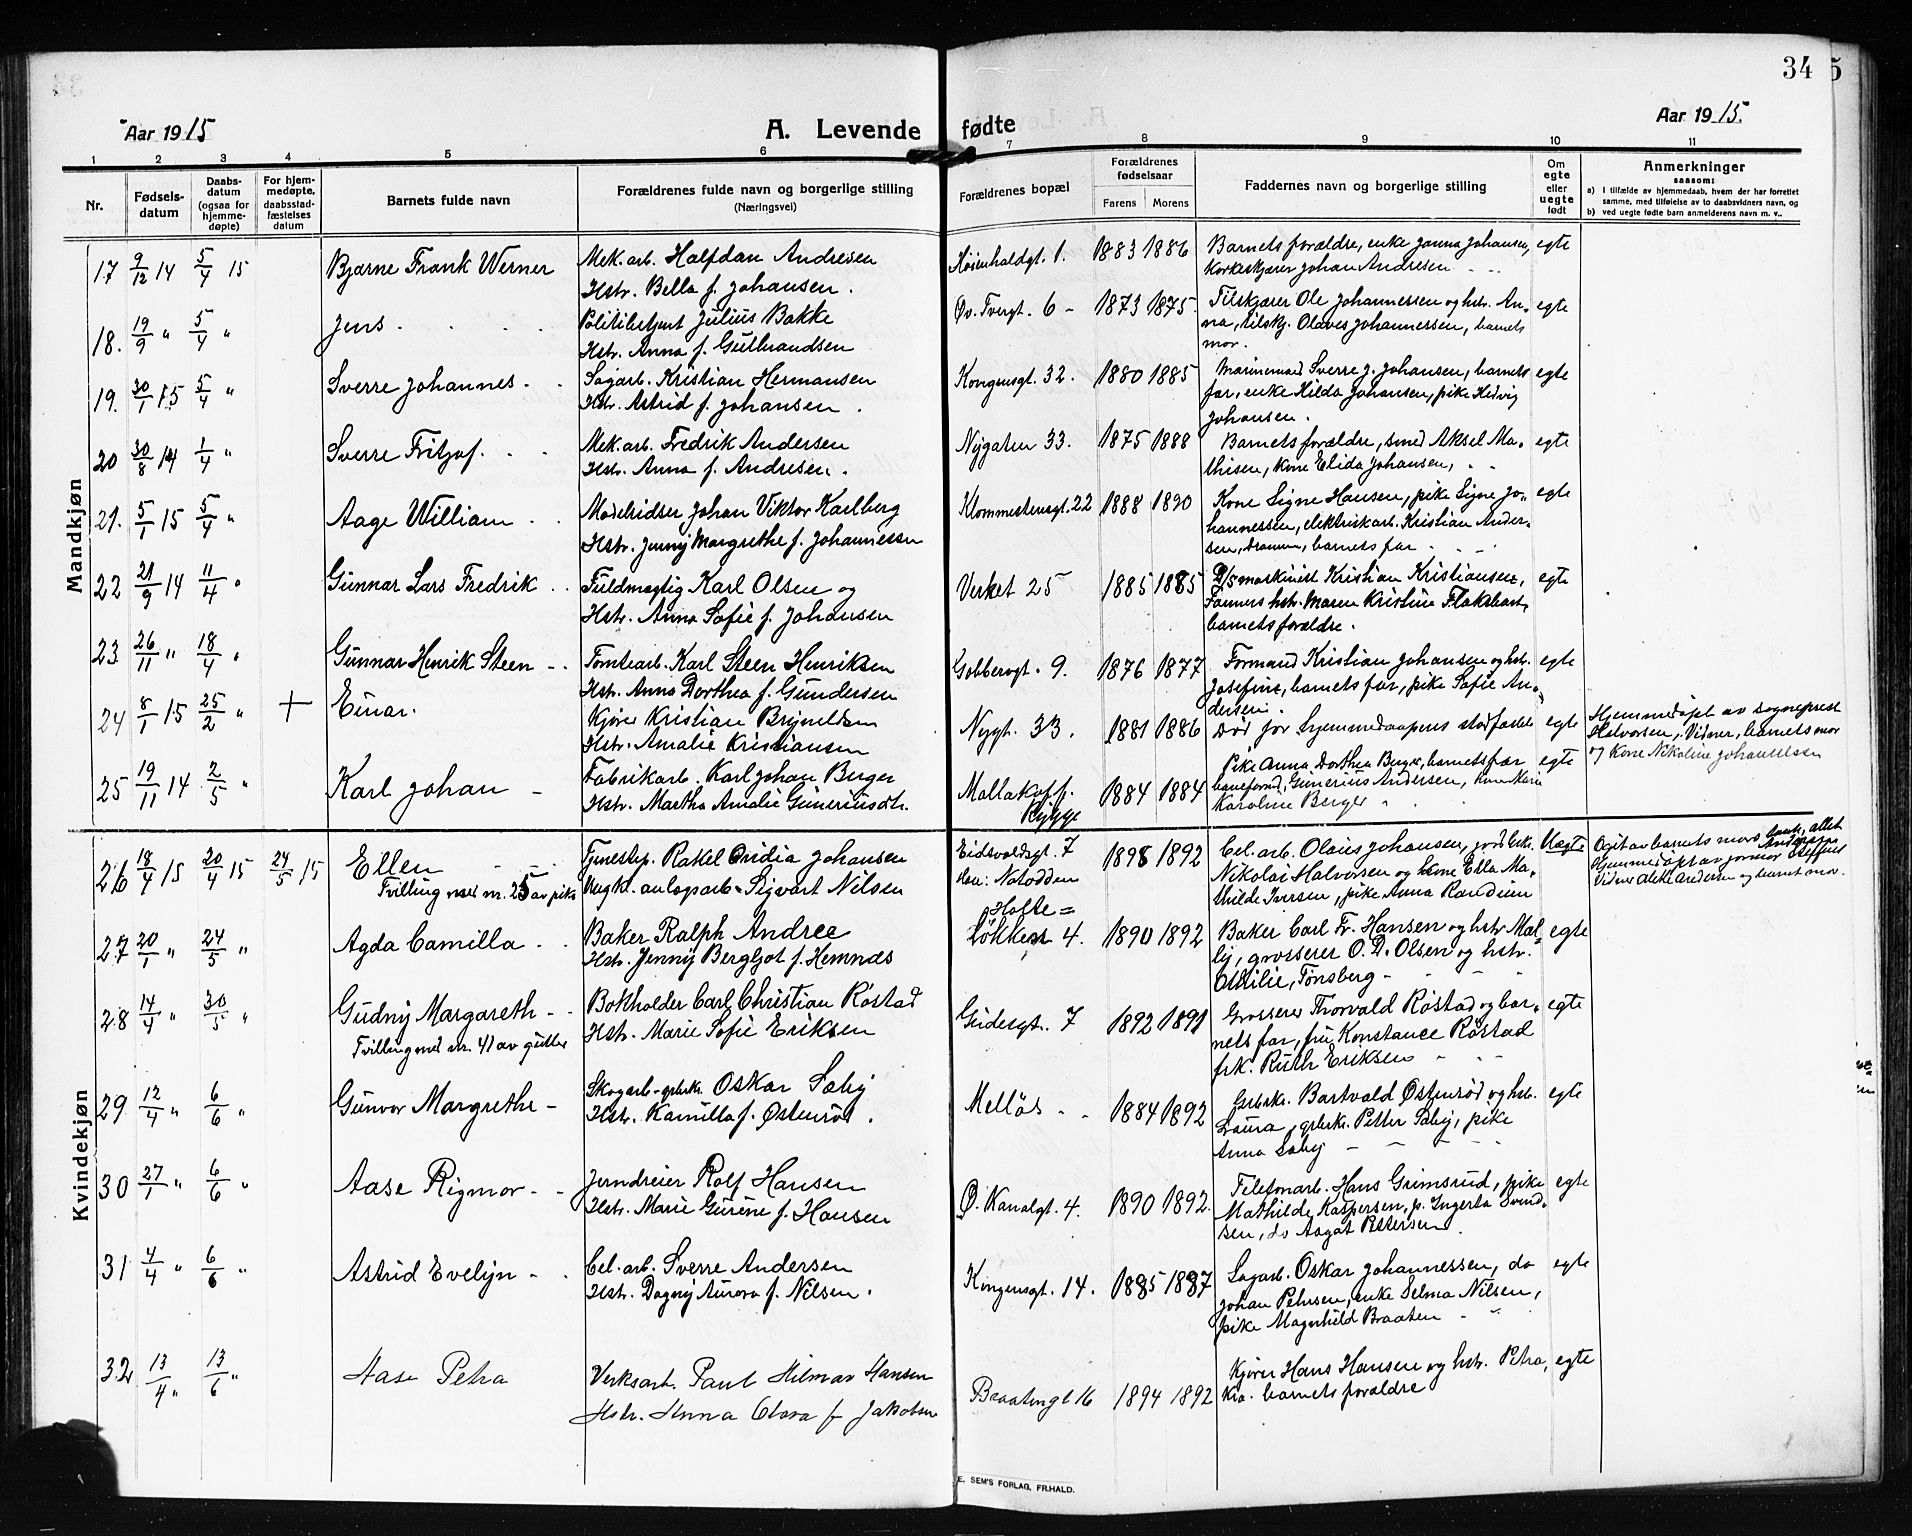 34
5
Aar 1915
A. Levende fødte
Aar 1915.
1 2 3 4 5 6 7 8 9 10 11
Nr.
Fødsels-
datum
Daabs-
datum
(ogsaa for
hjemme-
døpte)
For hjem-
medøpte,
daabsstad-
fæstelses
datum
Barnets fulde navn
Forældrenes fulde navn og borgerlige stilling
(Næringsvei)
Forældrenes bopæl
Forældrenes
fødselsaar
Farens Morens
Faddernes navn og borgerlige stilling
Om
egte
eller
uegte
født
Anmerkninger
saasom:
a) I tilfælde av hjemmedaab, hvem der har forrettet
samme, med tilføielse av to daabsvidners navn, og
b) ved uegte fødte barn anmelderens navn m. v..
Mandkjøn
17 9/12 14 5/4 15 Bjarne Frank Werner
Mek.arb. Halfdan Andresen
Hstr. Bella f. Johansen.
1. 1883 1886
Barnets forældre, enke Janna Johansen,
Korkeskjærer Johan Andresen
egte
18. 19/9 " 5/4 " Jens
Politibetjent Julius Bakke
Hstr. Anna f. Gulbrandsen
Øv. Tvergt. 6 - 1873 1875.
Filskjærer Ole Johannessen og hstr. An-
na, filskj. Olaves Johannessen, barnets
mor.
egte
19. 30/1 15 5/4 " Sverre Johannes
Sagarb. Kristian Hermansen
Hstr. Astrid f. Johansen.
Kongensgt. 32. 1880 1885
Marinemand Sverre J. Johansen, barnets
far, enke Hilda Johansen, pike Hedvig
Johansen.
egte
20 30/8 14 1/4 " Sverre Fritjof.
Mek.arb. Fredrik Andersen
Hstr. Anna f. Andresen.
Nygaten 33. 1875 1888
Barnets forældre, smed Aksel Ma-
thisen, kone Elida Johansen,
egte
21. 5/1 15 5/4 " Aage William
Johan Viktor Karlberg
Hstr. Jenny Margrethe f. Johannessen
22 1888 1890
Kone Signe Hansen, pike Signe Jo-
hannessen, elektriskarb. Kristian Ander-
sen, Drammen, barnets far.
egte
22 21/9 14 11/4 " Gunnar Lars Fredrik
Fuldmægtig Karl Olsen og
Hstr. Anna Sofie f. Johansen
Verket 25 1885 1885
D/S maskinist Kristian Kristiansen,
hstr. Maren Kristine
barnets forældre.
egte
23 26/11 " 18/4 " Gunnar Henrik Steen
Tomtearb. Karl Steen Henriksen
Hstr. Anna Dorthea f. Gundersen
9. 1876 1877
Formand Kristian Johansen og hstr.
Josefine, barnets far, pike Sofie An-
dersen.
egte
24 8/1 15 25/2 " + Einar.
Kjører Kristian Bryneldsen
Hstr. Amalie Kristiansen
Nygt. 33. 1881 1886
Død før hjemmedaapens stadfæstelse
egte
Hjemmedøpt av sogneprest
Halvorsen, Vidner, barnets mor
og Kone Nikoline Johannessen
25 19/11 14 2/5 " Karl Johan
Fabrikarb. Karl Johan Berger
Hstr. Martha Amalie Guneriusdtr.
Mallakoff.
Rygge
1884 1884
Pike Anna Dorthea Berger, barnets far
baneformd. Gunerius Andersen, kone Maren
Karoline Berger
egte
Kvindekjøn
26 18/4 15 20/4 15 24/5 15 Ellen
Tvilling med nr. 25 av pike
Tjenestep. Rakel Ovidia Johansen
Ungk. anlegsarb. Sigvart Nilsen
Eidsvoldsgt. 7
Notodden
1898 1892
Cel. arb. Olaus Johansen,
Nikolai Halvorsen og kone Ella Ma-
thilde Iversen, pike Anna Randien
Uegte
Opgit av barnets mors
Hjemmedøpt av jormor
Vidner og barnets mor.
27 20/1 " 24/5 " Agda Camilla
Baker Ralph Andree
Hstr. Jenny Bergljot f. Hemnes
Holte=
løkken 4. 1890 1892
Baker Carl Fr. Hansen og hstr. Mal-
ly, grosserer O. D. Olsen og hstr.
Othilie, Tønsberg -
egte
28 14/4 " 30/5 " Gudny Margareth
Tvilling med nr. 41 av gutter
Bokholder Carl Christian Røstad
Hstr. Marie Sofie Eriksen
Gudesgt. 7 1892 1891
Grosserer Thorvald Røstad og bar-
nets far, fru Konstance Røstad
frk. Ruth Eriksen
egte
29 12/4 " 6/6 " Gunvor Margrethe -
Skogarb. - gbrbr. Oskar Saby
Hstr. Kamilla f. Østenrød.
Melløs 1884 1892
Grbrkr. Bartvald Østenrød og hstr.
Laura, grbrkr. Petter Saby, pike
Anna Saby
egte
30 27/1 " 6/6 " Aase Rigmor
Jerndreier Rolf Hansen
Hstr. Marie Gurine f. Hansen
Ø. Kanalgt. 4. 1890 1892.
Telefonarb. Hans Grimsrud, pike
Mathilde Kaspersen, p. Ingerta Svend-
sen, do Aagot Pettersen.
egte
31 4/4 " 6/6 " Astrid Evelyn
Cel. arb. Sverre Andersen
Hstr. Dagny Aurora f. Nilsen.
Kongensgt. 14. 1885 1887
Sagarb. Oskar Johannessen, do
Johan Petersen, enke Selma Nilsen,
pike Magnhild Braaten
egte
32 13/4 " 13/6 " Aase Petra
Verksarb. Paul Hilmar Hansen
Hstr. Anna Clara f Jakobsen
Braatengt 16 1894 1892
Kjører Hans Hansen og hstr. Petra,
Kra. barnets forældre
egte
E. SEM'S FORLAG, FR.HALD.